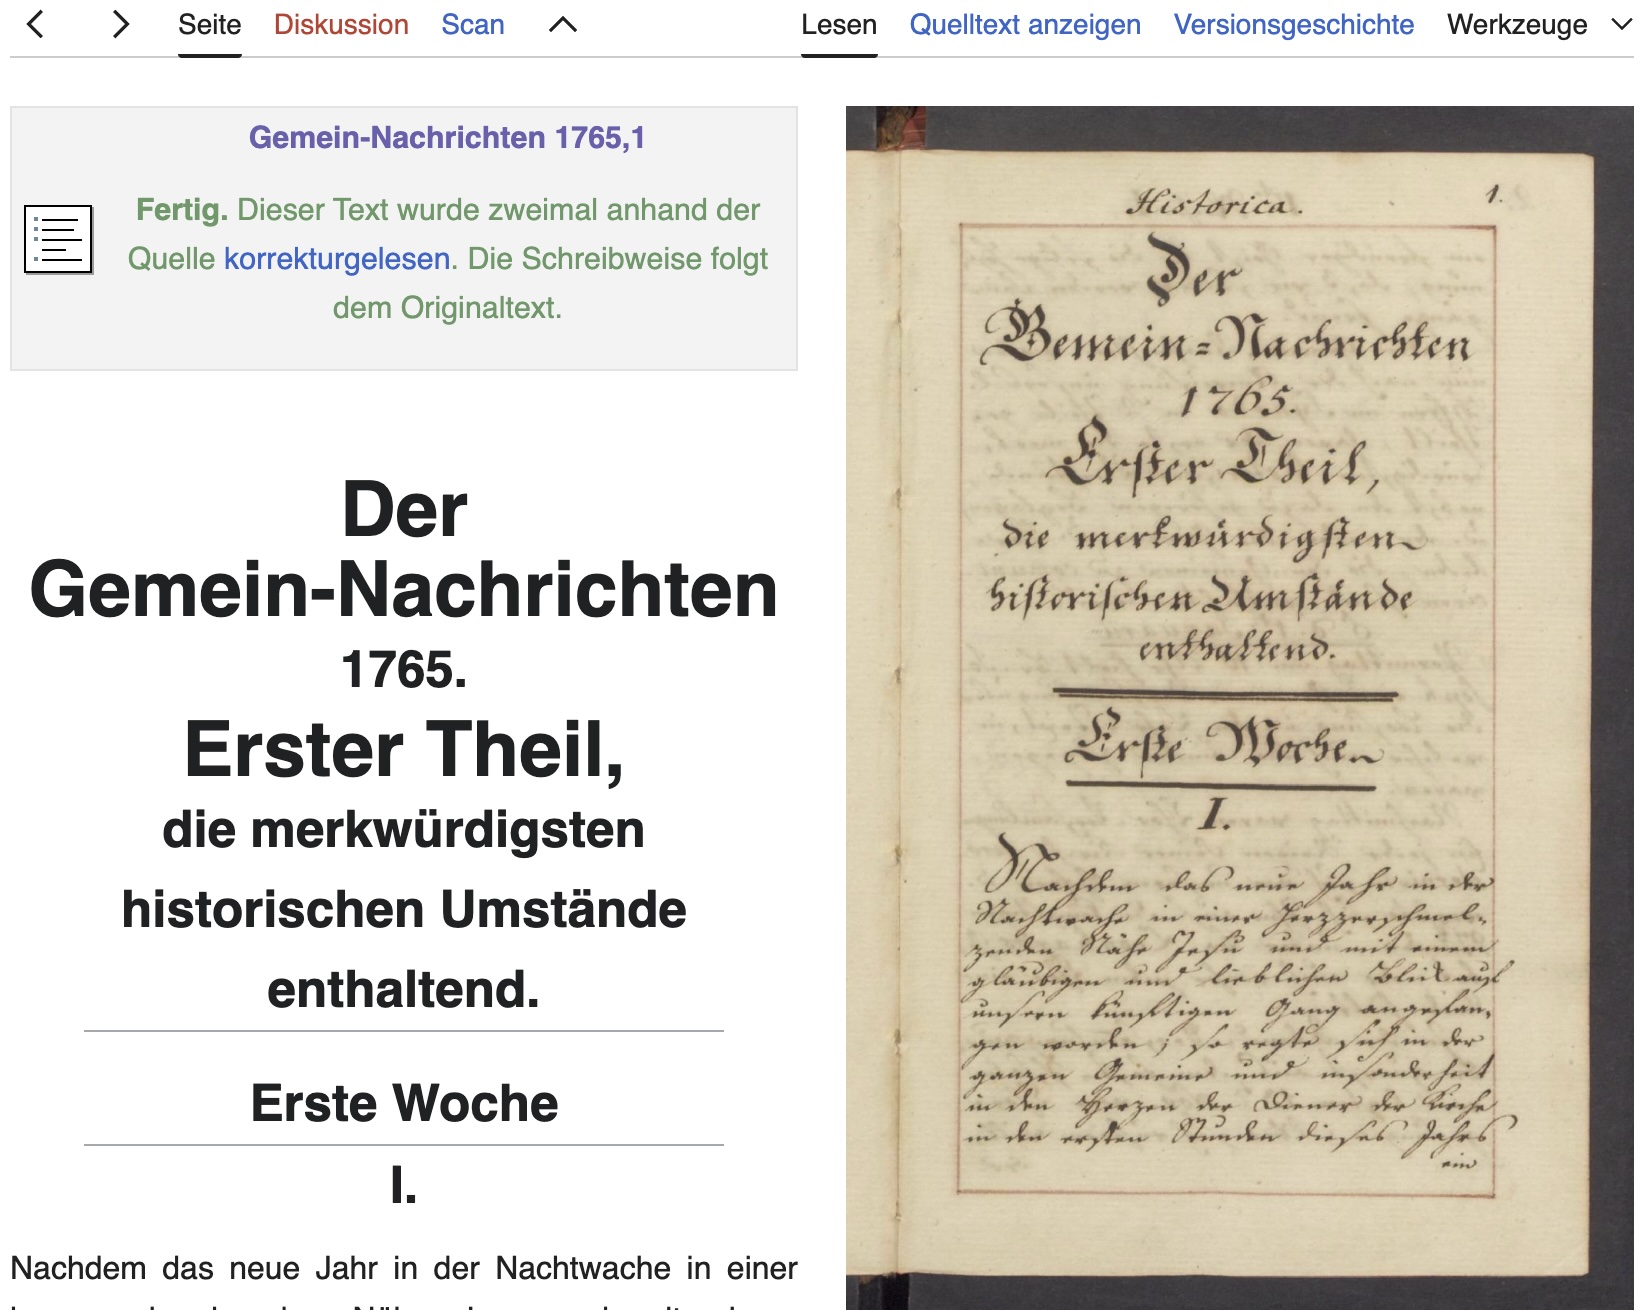 Seite Diskussion Scan
Lesen Quelltext anzeigen Versionsgeschichte Werkzeuge
Gemein-Nachrichten 1765,1
Fertig. Dieser Text wurde zweimal anhand der
Quelle korrekturgelesen. Die Schreibweise folgt
dem Originaltext.
Der
Gemein-Nachrichten
1765.
Erster Theil,
die merkwürdigsten
historischen Umstände
enthaltend.
Erste Woche
I.
Nachdem das neue Jahr in der Nachtwache in einer
Historica.
1.
Der
Gemein=Nachrichten
1765.
Erster Theil,
die merkwürdigsten
historischen Umstände
enthaltend.
Erste Woche
I.
Nachdem das neue Jahr in der
Nachtwache in einer herzzerschmel-
zenden Nähe Jesu und mit einem
gläubigen und lieblichen Blick auf
unsern künftigen Gang angefan-
gen worden; so regte sich in der
ganzen Gemeine und insonderheit
in den Herzen der Diener der Kirche
in den ersten Stunden dieses Jahrs
ein